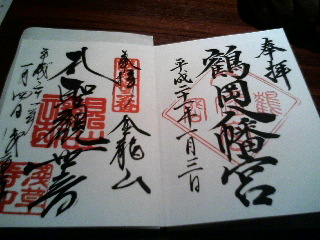 奉拝
鶴岡八幡宮
平成二十一年一月三日
奉拝
金龍山
聖観世音
平成二十一年一月四日
浅草寺